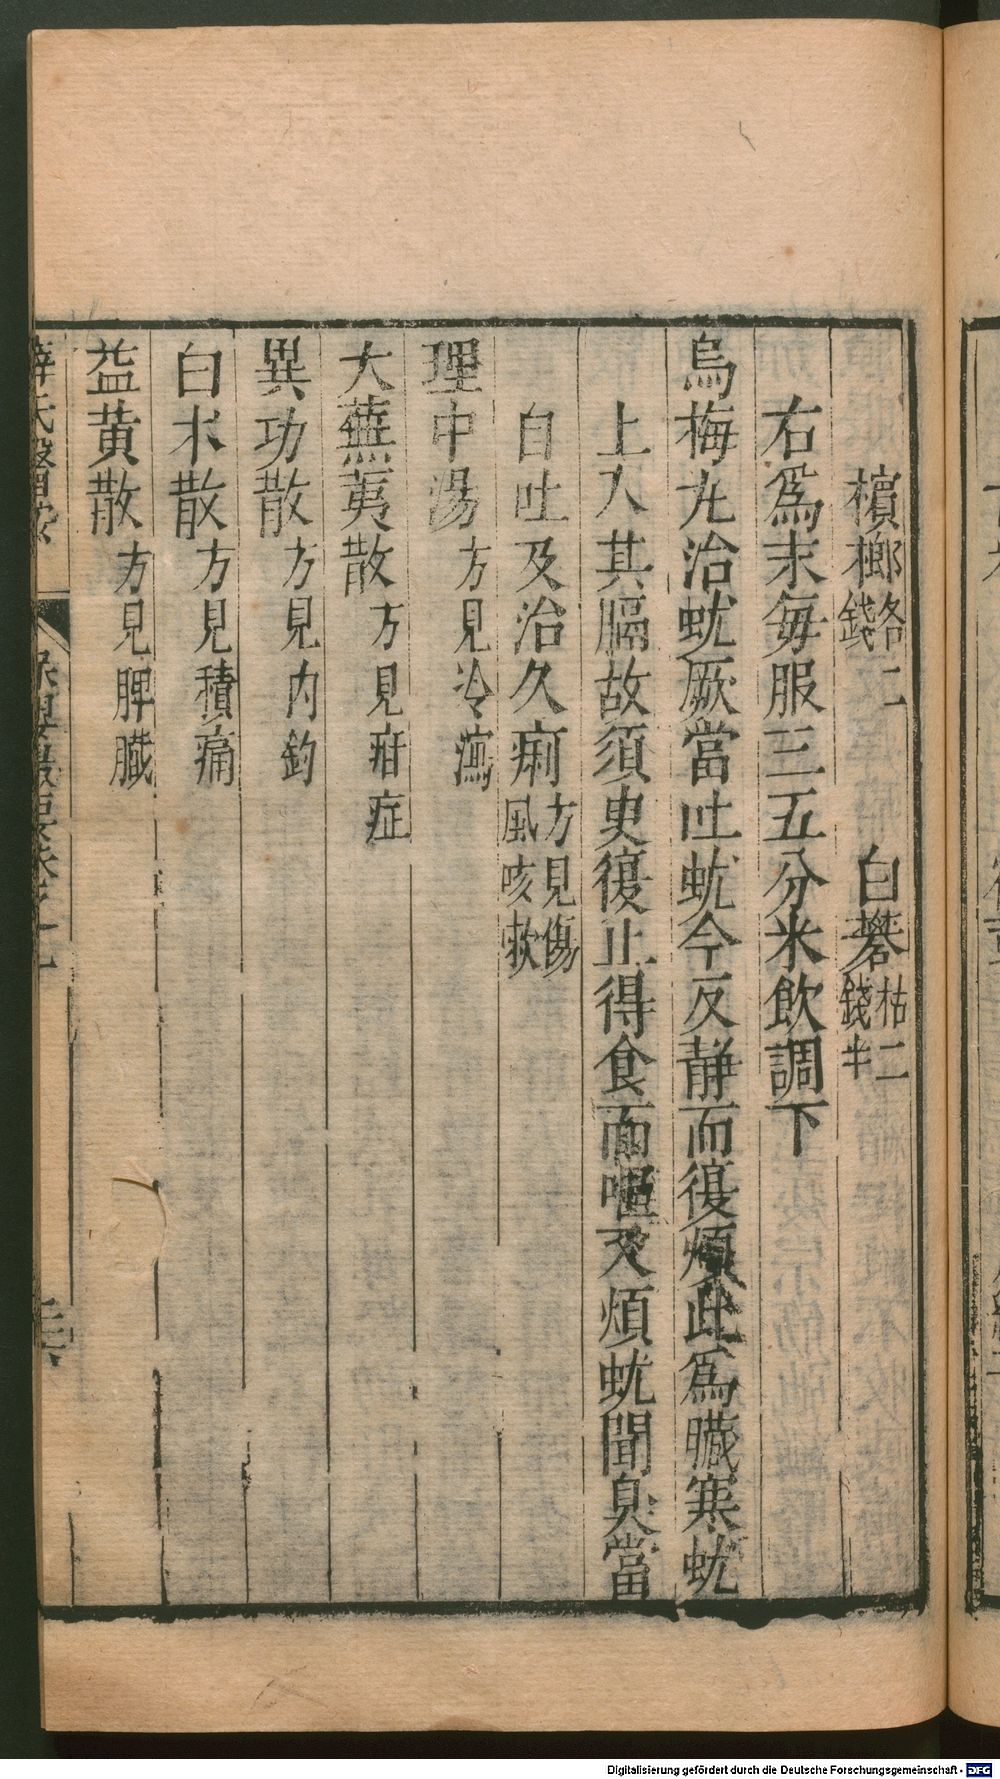 檳榔各二錢　白礬枯二錢半
右爲末每服三五分米飲調下
烏梅丸治蚘厥當吐蚘今反静而復煩此爲臓寒蚘
上入其膈故須臾復止得食而嘔又煩蚘聞臭當
自吐及治久痢方見傷風咳嗽
理中湯方見冷瀉
大蕪荑散方見疳症
異功散方見内釣
白术散方見積痛
益黄散方見脾臓
薛氏醫按 保嬰撮要卷之
Digitalisierung gefördert durch die Deutsche Forschungsgemeinschaft - DFG